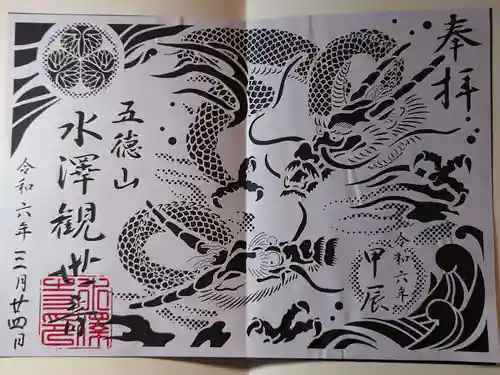 奉拝
令和六年
甲辰
五徳山
水澤観世音
令和六年三月廿四日